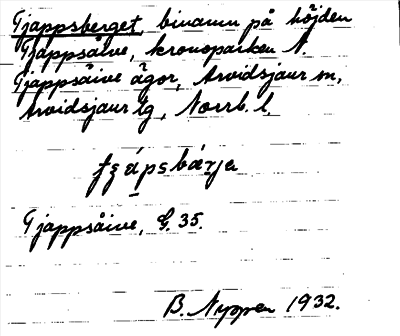 Tjappsberget, binamn på höjden
Tjappsåive, kronoparken N.
Tjappsåive ägor, Arvidsjaur sn,
Arvidsjaur lg, Norrb. l.
Tjappsåive, G. 35.
B. Nyman 1932.